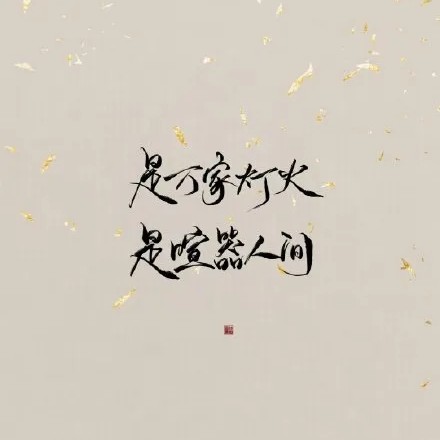 是万家灯火
是喧嚣人间